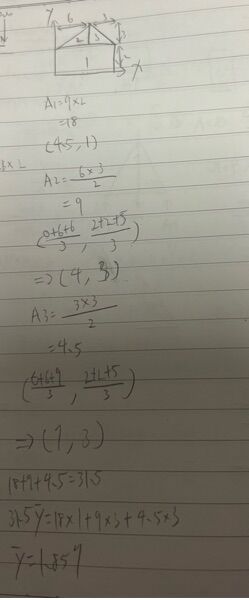 Y
6 3
2 3 3
1 2
X
A1=9×2
=18
(4.5, 1)
A2= 6×3 / 2
= 9
(0+6+6 / 3 , 2+2+5 / 3)
=> (4, 3)
A3= 3×3 / 2
=4.5
(6+6+9 / 3 , 2+2+5 / 3)
=> (7, 3)
18+9+4.5=31.5
31.5ȳ=18×1+9×3+4.5×3
ȳ=1.857